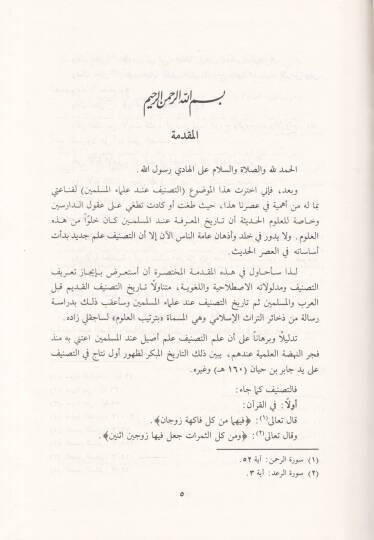 بسم الله الرحمن الرحيم
المقدمة
الحمد لله والصلاة والسلام على الهادي رسول الله.
وبعد، فإني اخترت هذا الموضوع (التصنيف عند علماء المسلمين) لقناعتي
بما له من أهمية في عصرنا هذا، حيث طغت أو كادت تطغى على عقول الدارسين
وخاصة للعلوم الحديثة أن تاريخ المعرفة عند المسلمين كان خلواً من هذه
العلوم. ولا يدور في خلد وأذهان عامة الناس الآن إلا أن التصنيف علم جديد بدأت
أساساته في العصر الحديث.
لذا سأحاول في هذه المقدمة المختصرة أن أستعرض بإيجاز تعريف
التصنيف ومدلولاته الاصطلاحية واللغوية، متناولاً تاريخ التصنيف القديم قبل
العرب والمسلمين ثم تاريخ التصنيف عند علماء المسلمين وسأعقب ذلك بدراسة
رسالة من ذخائر التراث الإسلامي وهي المسماة «بترتيب العلوم» لساجقلي زاده.
تدليلاً وبرهاناً على أن علم التصنيف علم أصيل عند المسلمين اعتني به منذ
فجر النهضة العلمية عندهم، يبين ذلك التاريخ المبكر لظهور أول نتاج في التصنيف
على يد جابر بن حيان (١٦٠ هـ) وغيره.
فالتصنيف كما جاء:
أولاً: في القرآن:
قال تعالى(١): ﴿فيهما من كل فاكهة زوجان﴾.
وقال تعالى(٢): ﴿ومن كل الثمرات جعل فيها زوجين اثنين﴾.
(١) سورة الرحمن: آية ٥٢.
(٢) سورة الرعد: آية ٣.
٥